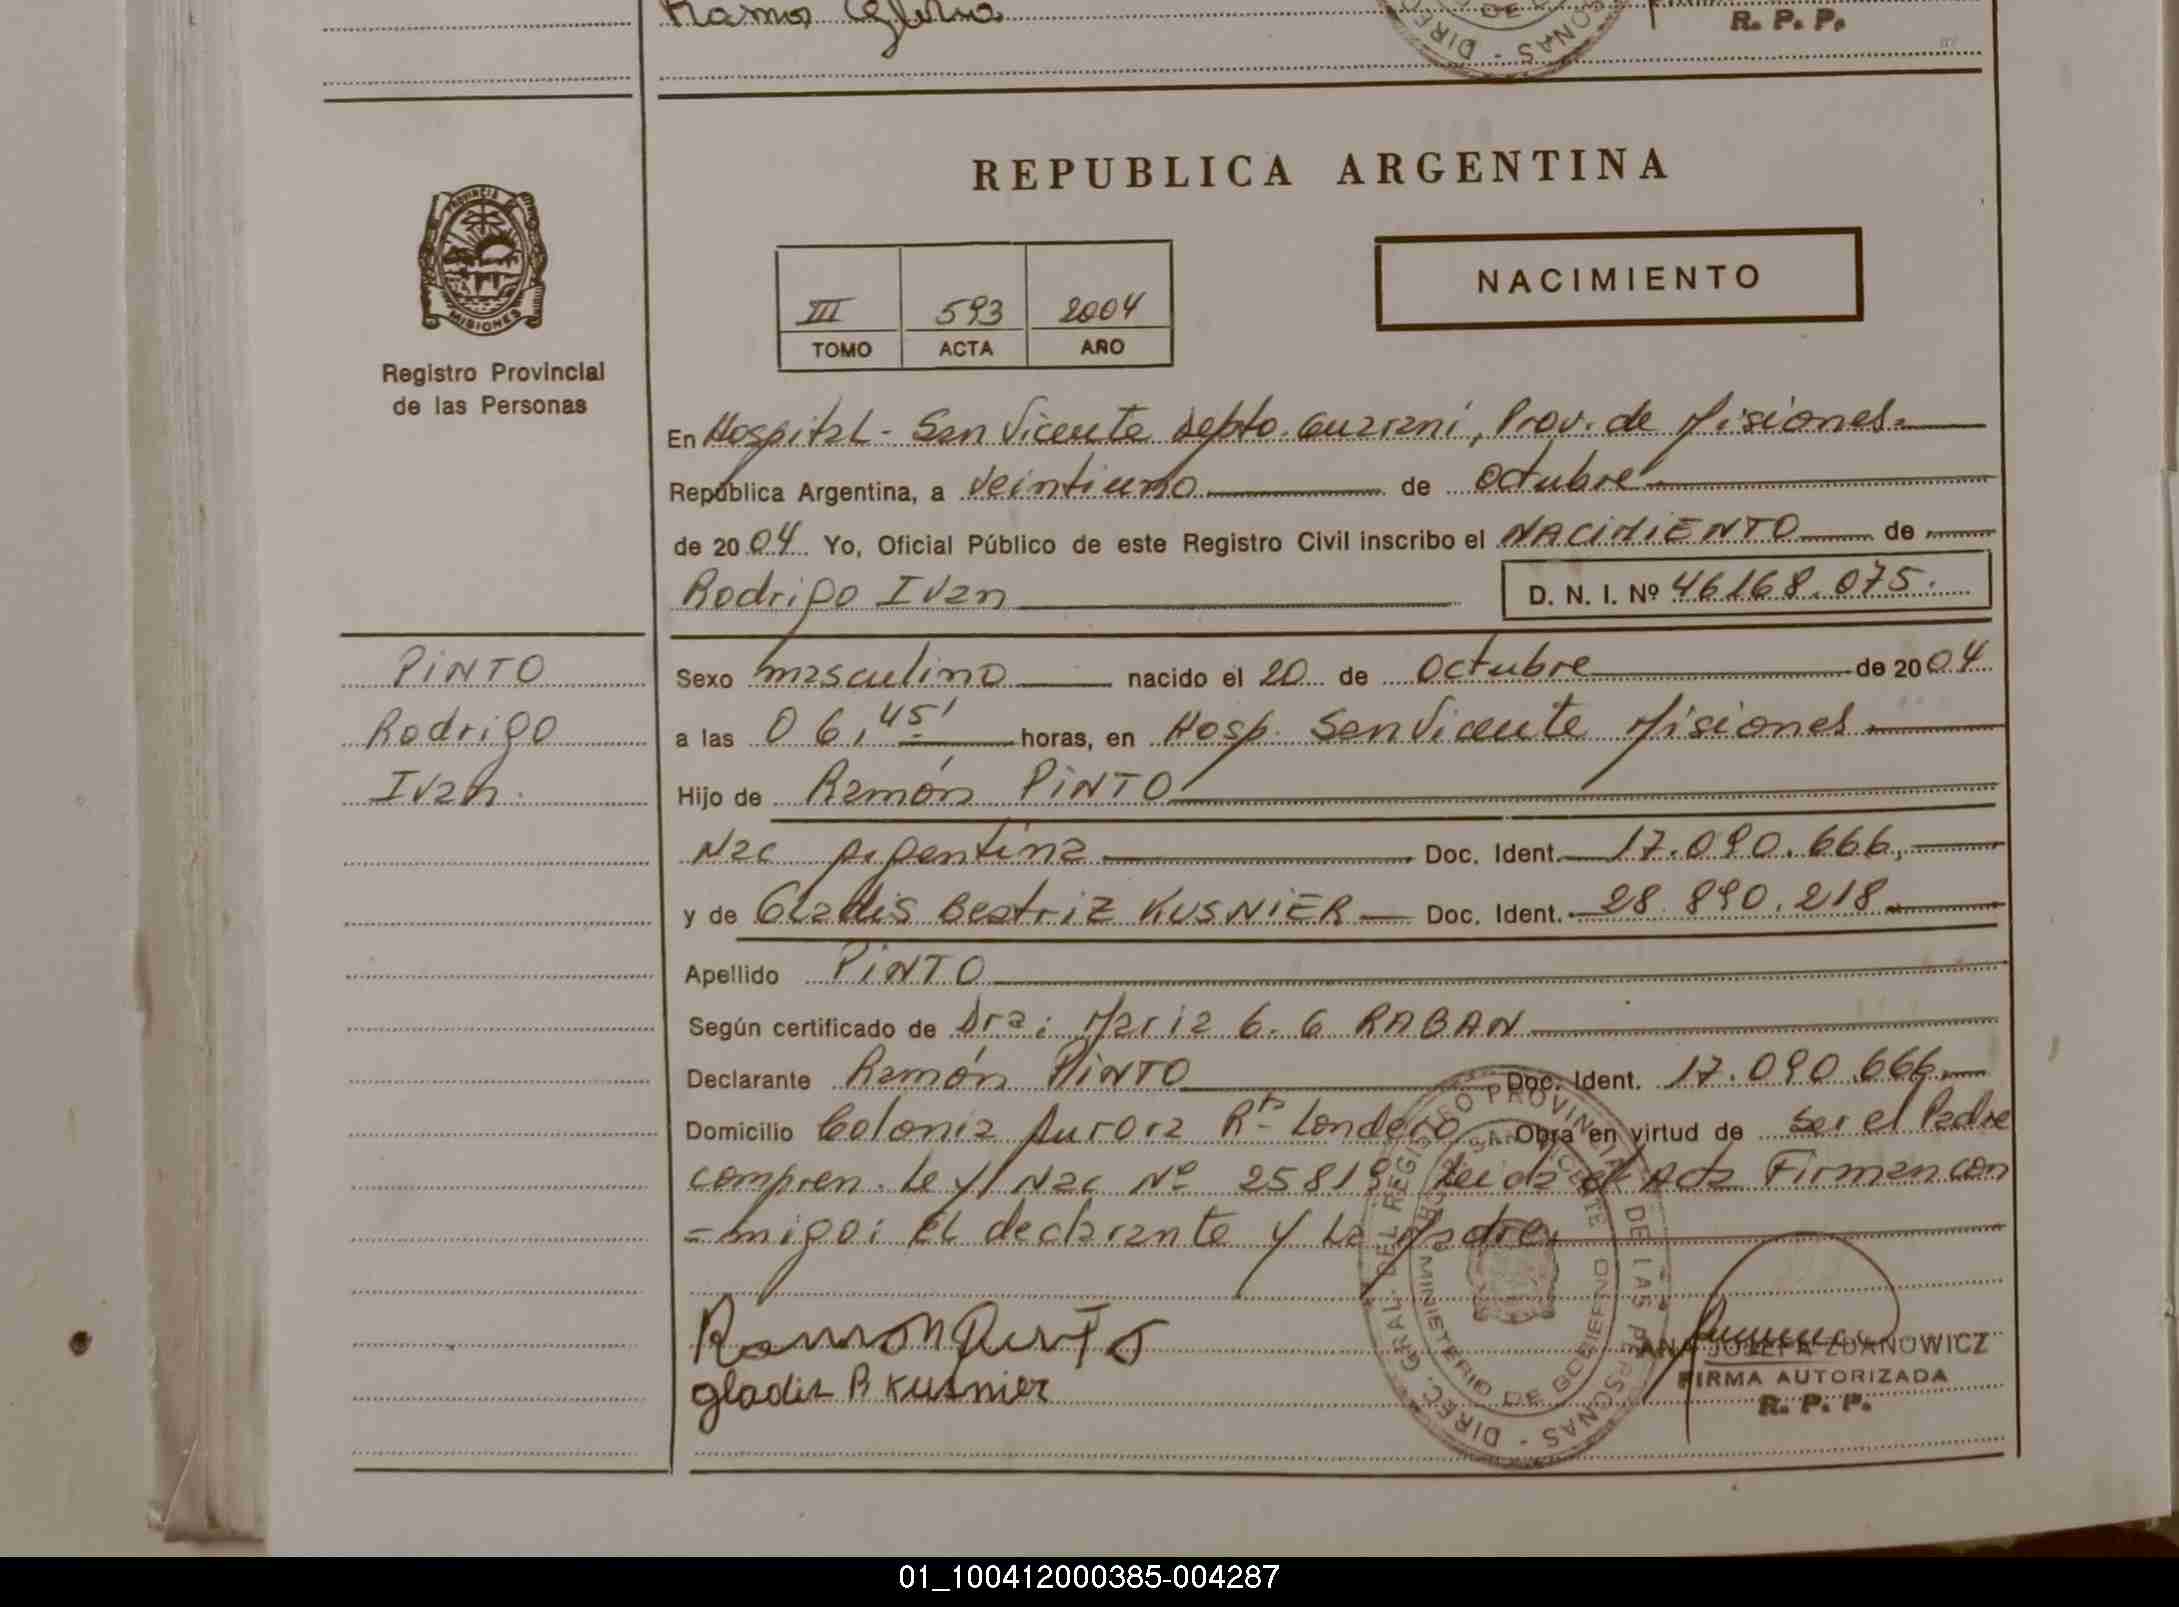 Ramon
R. P. P.
DE
DIREC
ONAS
REPUBLICA ARGENTINA
PROVINCIA
MISIONES
Registro Provincial
de las Personas
III 593 2004
TOMO ACTA AÑO
NACIMIENTO
En Hospital - San Vicente Depto. Guaraní, Prov. de Misiones.
República Argentina, a veintiuno de octubre
de 2004 Yo, Oficial Público de este Registro Civil inscribo el NACIMIENTO de
Rodrigo Ivan D. N. I. Nº 46168.075.
PINTO
Rodrigo
Ivan.
Sexo masculino nacido el 20 de octubre de 2004
a las 06,45' horas, en Hosp. San Vicente Misiones
Hijo de Ramón PINTO
Nac Argentina Doc. Ident. 17.090.666,
y de Gladis Beatriz KUSNIER Doc. Ident. 28 890.218
Apellido PINTO
Según certificado de Dra: Maria G. G RABAN
Declarante Ramón PINTO Doc. Ident. 17.090.666
Domicilio Colonia Aurora Rº Londero Obra en virtud de ser el Padre
compren. Ley Nac Nº 25819 leida el Acta Firman con
=migo: El declarante y La Madre.
Ramon Pinto
gladis B Kusnier
DIREC. GRAL. DEL REGISTRO PROVINCIAL DE LAS PERSONAS
MINISTERIO DE GOBIERNO
SAN VICENTE
ANA JOSEFA ZDANOWICZ
FIRMA AUTORIZADA
R. P. P.
01_100412000385-004287